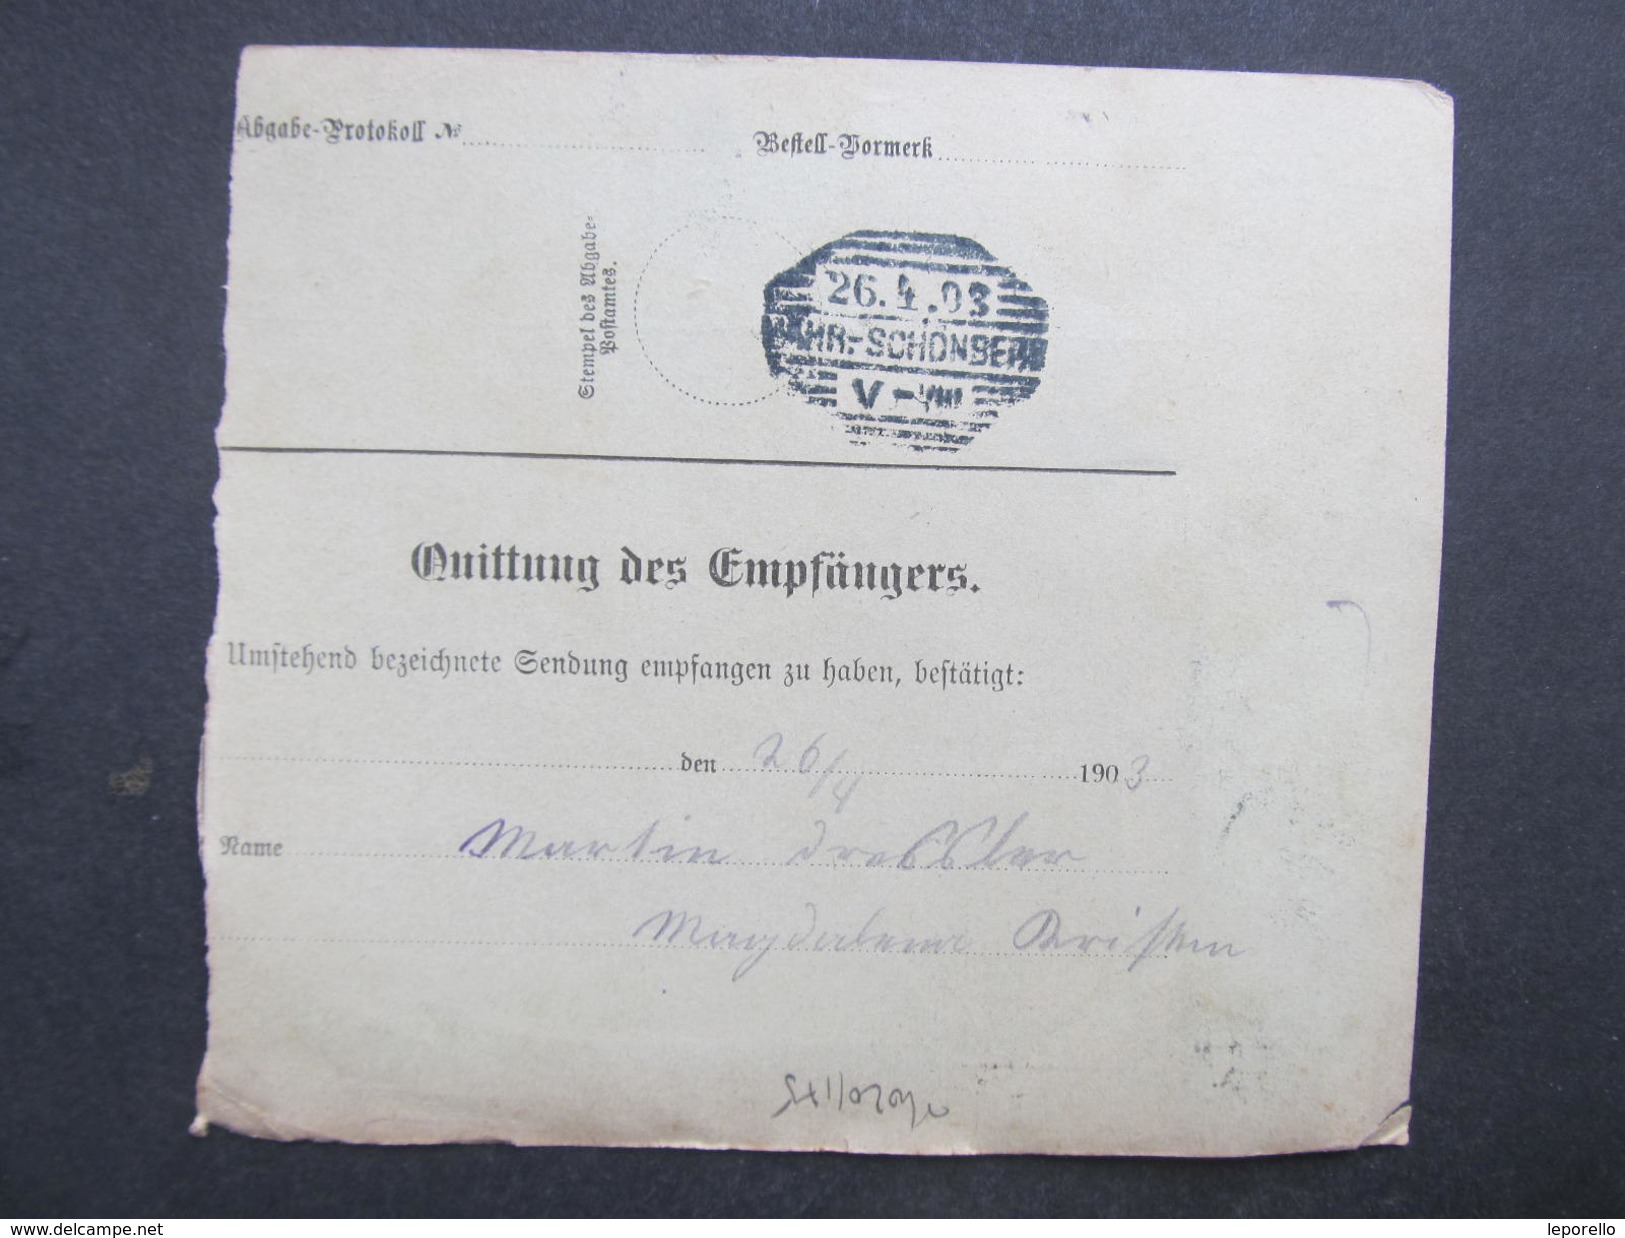 Abgabe-Protokoll №
Bestell-Vormerk
Stempel des Abgabe-
Postamtes.
26.4.03
MÄHR.-SCHÖNBERG
V - VIII
Quittung des Empfängers.
Umstehend bezeichnete Sendung empfangen zu haben, bestätigt:
den 26/4 1903
Name Martin Dressler
Magdalena
www.delcampe.net
leporello